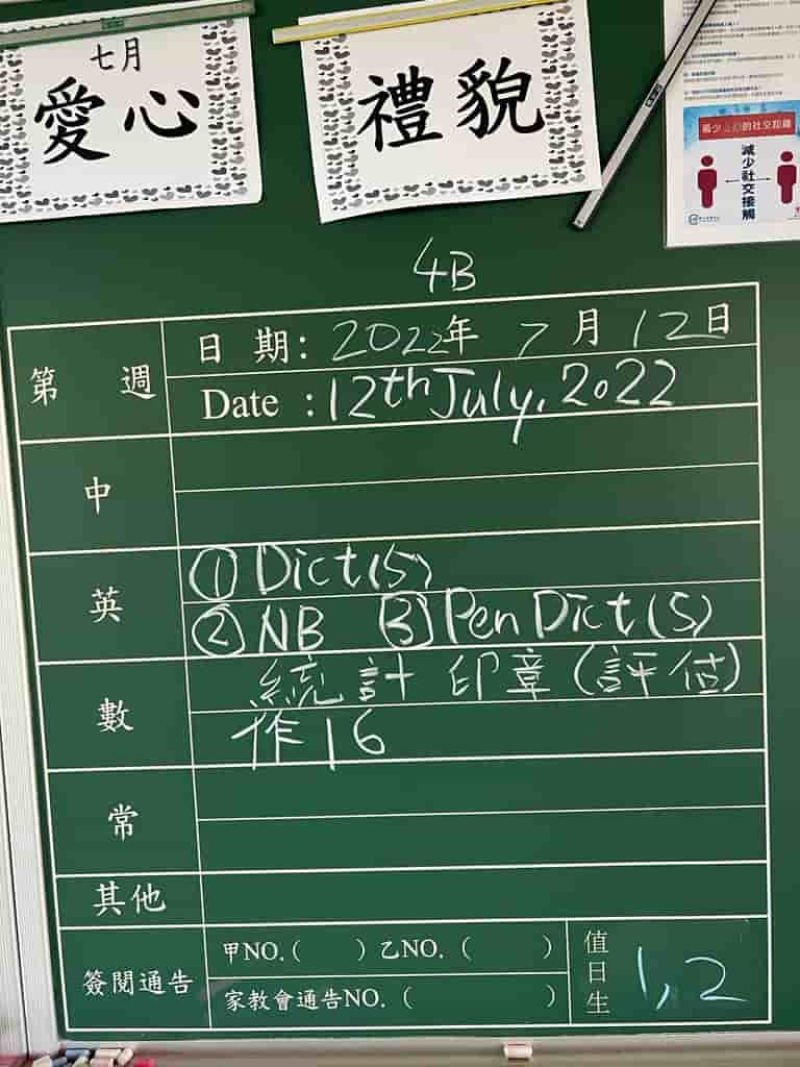 七月
愛心
禮貌
減少社交接觸
4B
第 週
日 期：2022年 7月 12日
Date : 12th July, 2022
中
英
① Dict(5)
② NB ③ Pen Dict(S)
數
統計 印章(評估)
作16
常
其他
簽閱通告
甲NO.( ) 乙NO.( )
家教會通告NO.( )
值日生
1, 2